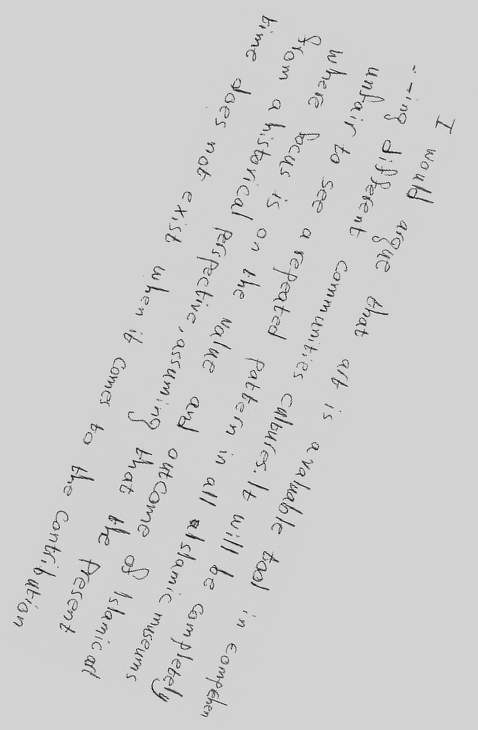 I would argue that art is a valuable tool in comprehen
-ing different communities cultures. It will be completely
unfair to see a repeated pattern in all Islamic museums
where focus is on the value and outcome of Islamic art
from a historical perspective, assuming that the Present
time does not exist when it comes to the contribution